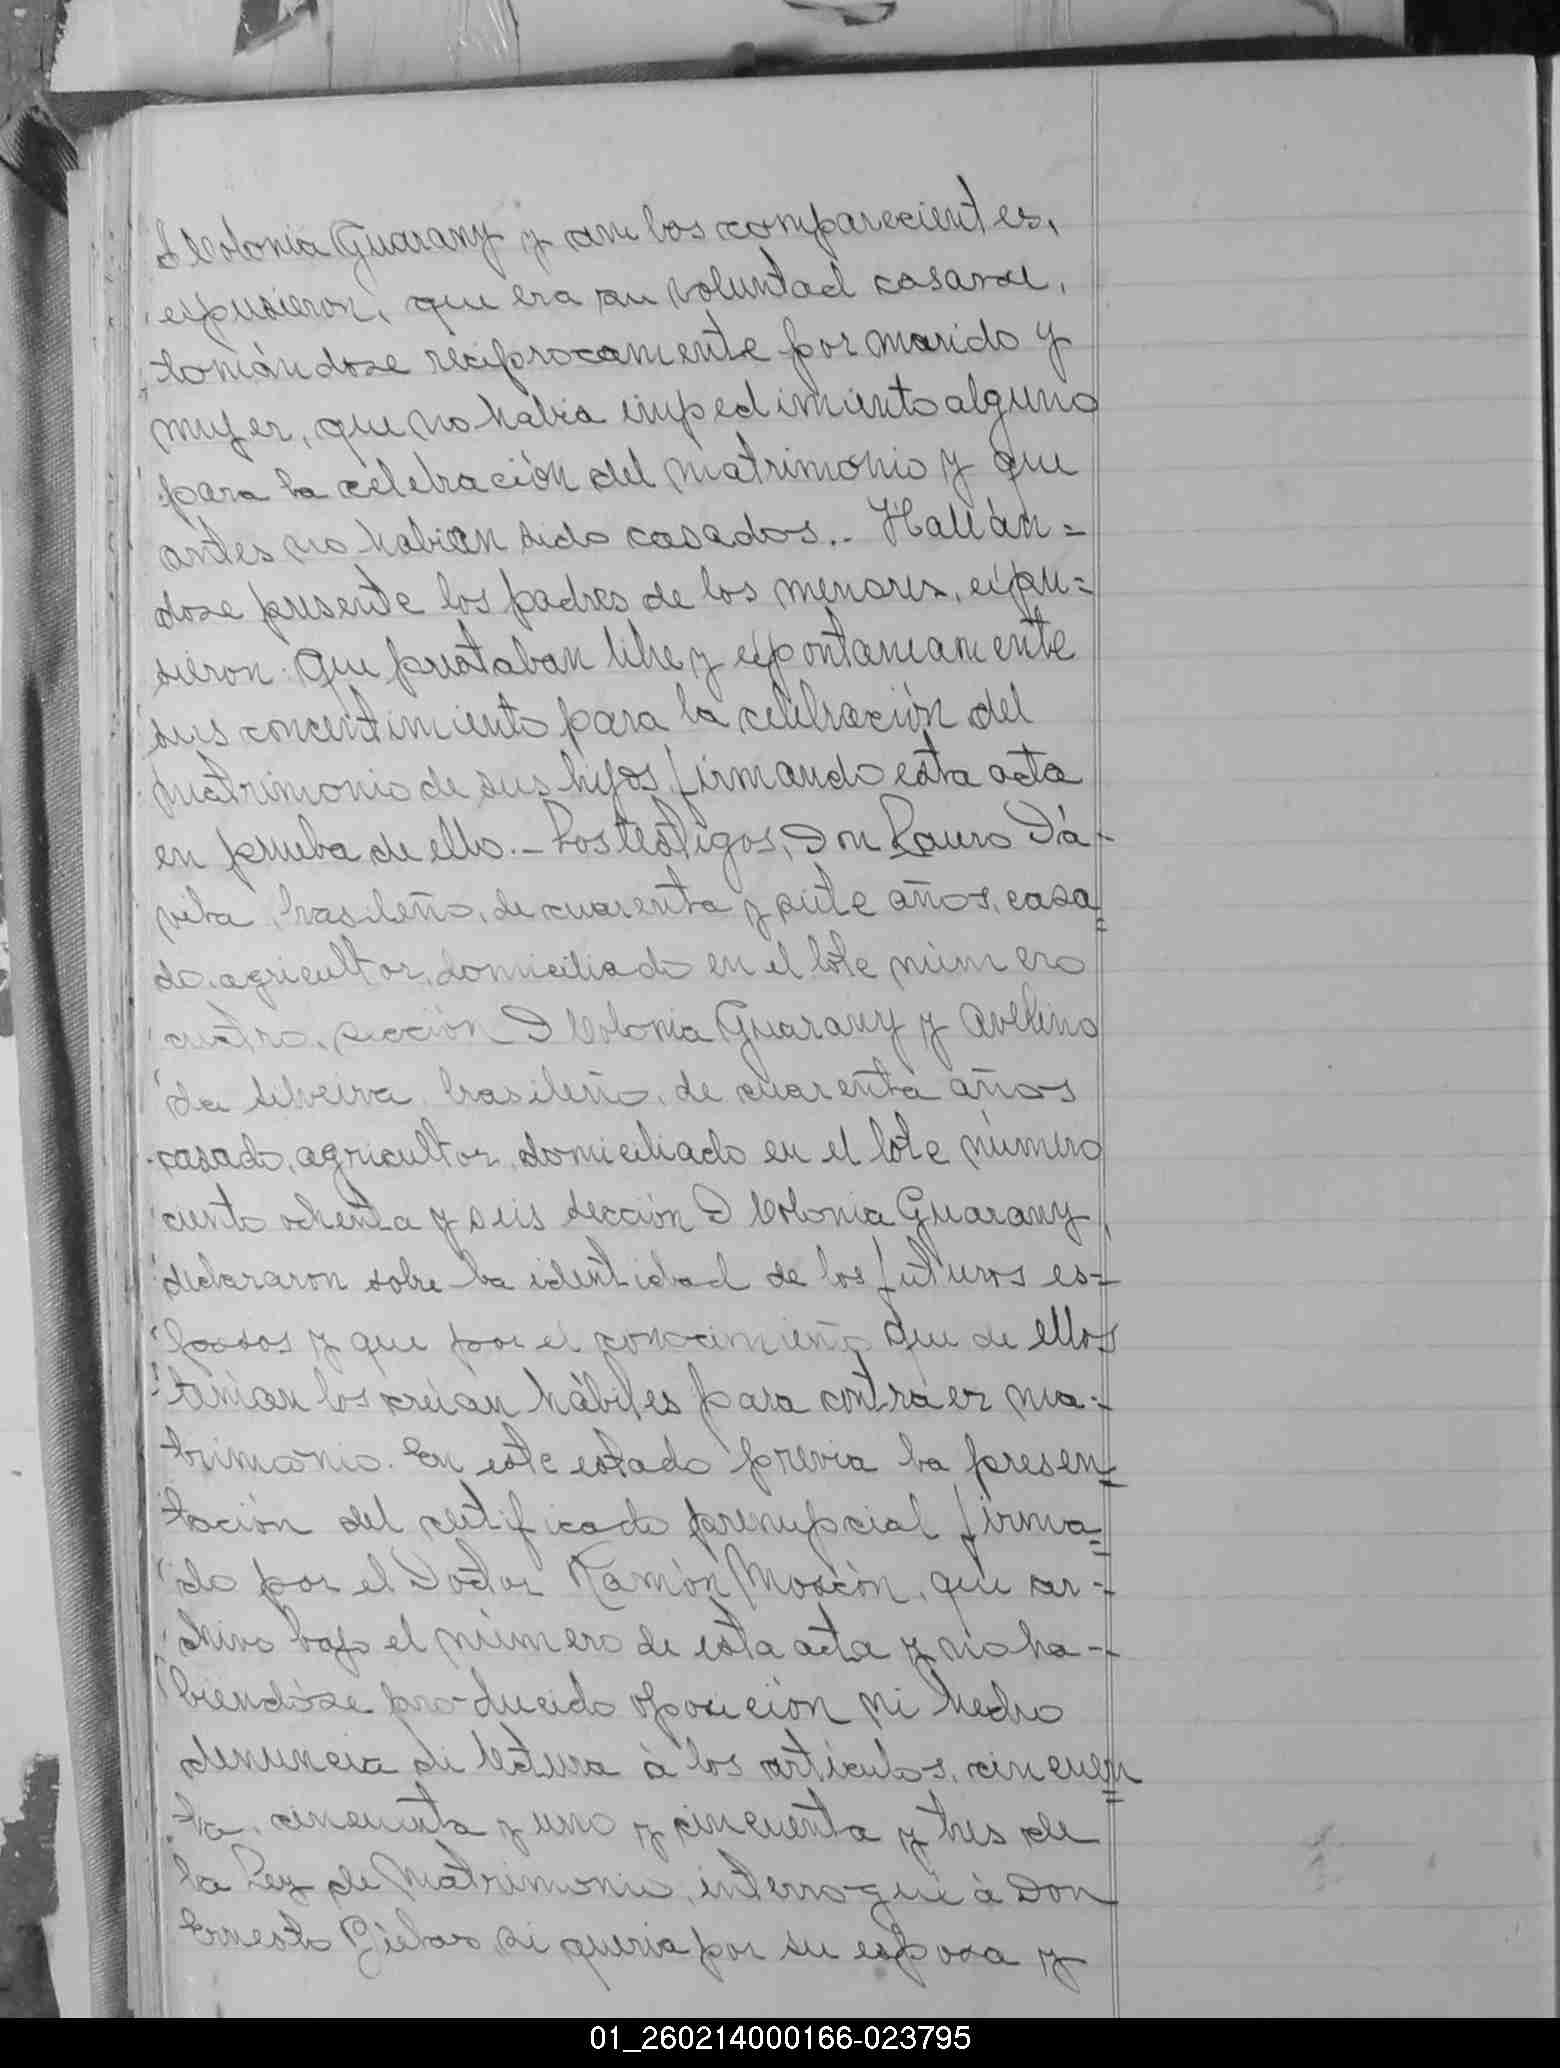 D Colonia Guarany y ambos comparecientes,
expusieron, que era su voluntad casarse,
tomándose reciprocamente por marido y
mujer, que no habia impedimiento alguno
para la celebración del matrimonio y que
antes no habian sido casados.. Hallán=
dose presente los padres de los menores, expu=
sieron: Que prestaban libre y expontaneamente
sus concentimiento para la celebración del
matrimonio de sus hijos, firmando esta acta
en prueba de ello.- Los testigos, Don Lauro Dá-
vila, brasileño, de cuarenta y siete años, casa=
do, agricultor, domiciliado en el lote número
cuatro, sección D Colonia Guarany y Avelino
da Silveira, brasileño, de cuarenta años
casado, agricultor, domiciliado en el lote número
ciento ochenta y seis sección D Colonia Guarany,
declararon sobre la identidad de los futuros es-
posos y que por el conocimiento que de ellos
tenian los creian hábiles para contraer ma-
trimonio. En este estado previa la presen=
tación del certificado prenupcial firma=
do por el Doctor Ramón que ar-
chivo bajo el número de esta acta y no ha-
biendóse producido oposición ni hecho
denuncia di letura á los articulos, cincuen=
ta, cincuenta y uno y cincuenta y tres de
la Ley de Matrimonio, interrogué á Don
Ernesto si queria por su esposa y
01_260214000166-023795